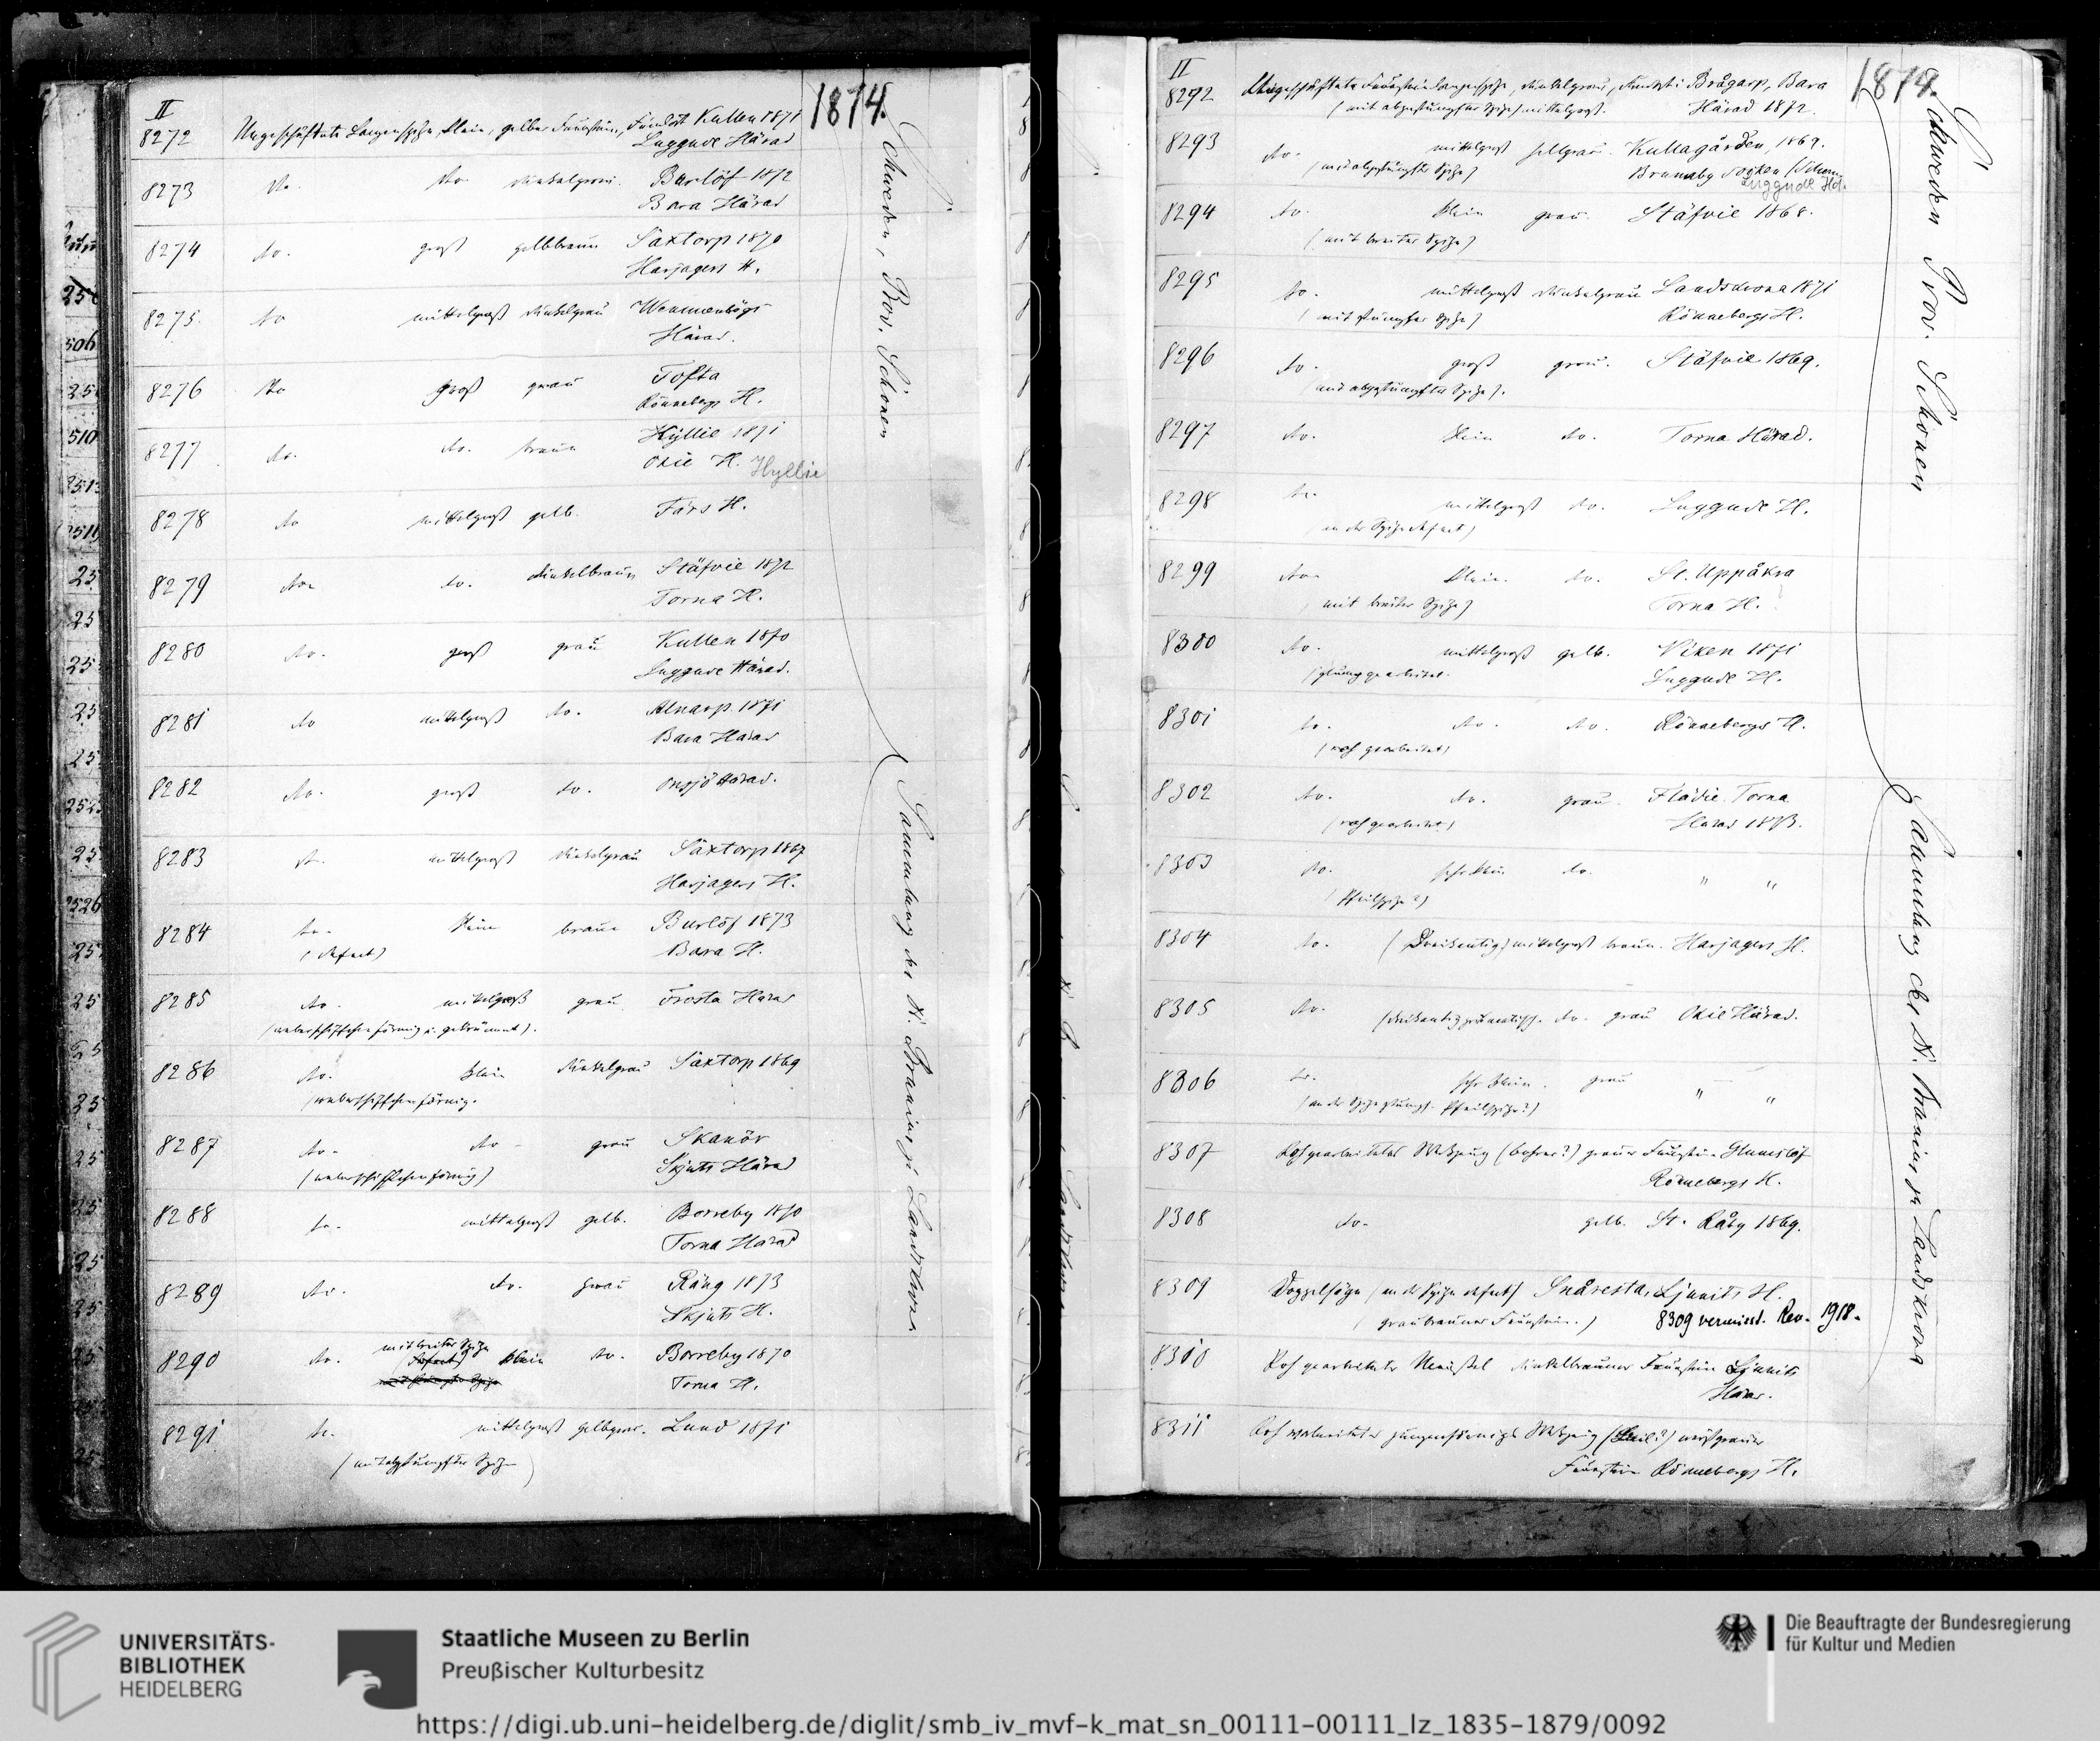 II
1874.
8272 Ungeschäftete Lanzenspitze, klein, gelber Feuerstein, Fundort Kullen 1871
Luggude Härad
8273 do. do. dunkelgrau. Burlöf 1872
Bara Härad
8274 do. groß gelbbraun Säxtorp 1870
Harjagers H.
8275. do mittelgroß dunkelgrau Wemmenhögs
Härad.
8276 do groß grau Tofta
Rönnebergs H.
8277 do. do. braun Hyllie 1871
Oxie H. Hyllie
8278 do mittelgroß gelb. Färs H.
8279 do. do. dunkelbraun Stäfvie 1872
Torna H.
8280 do. groß grau Kullen 1870
Luggude Härad.
8281 do mittelgroß do. Alnarp. 1871
Bara Harad
8282 do. groß do. Onsjö Harad.
8283 do. mittelgroß dunkelgrau Säxtorp 1867
Harjagers H.
8284 do. klein braun Burlöf 1873
(defect) Bara H.
8285 do. mittelgroß grau Frosta Harad
(weberschiffchenförmig u. gekrümmt).
8286 do. klein dunkelgrau Säxtorp 1869
(weberschiffchenförmig.
8287 do. do. grau Skanör
(weberschiffchenförmig) Skjuts Härad
8288 do. mittelgroß gelb. Borreby 1870
Torna Harad
8289 do. do. grau Räng 1873
Skjuts H.
8290 do. mit breiter Spitze (defect) klein do. Borreby 1870
Torna H.
8291 do. mittelgroß gelbgrau. Lund 1871
(mit abgestumpfter Spitze)
Schweden, Prov. Schonen
Sammlung des H. Brunius zu Landskrona
II
1874.
8292 Ungeschäftete Feuersteinlanzenspitze, dunkelgrau, Fundort: Brågarp, Bara
(mit abgestumpfter Spitze) mittelgroß. Härad 1872.
8293 do. mittelgroß hellgrau. Kullagården, 1869.
(mit abgestumpfter Spitze) Brunnby Socken
Luggude Hd.
8294 do. klein grau. Stäfvie 1868.
(mit breiter Spitze)
8295 do. mittelgroß dunkelgrau Landskrona 1871
(mit stumpfer Spitze) Rönnebergs H.
8296 do. groß grau. Stäfvie 1869.
(mit abgestumpfter Spitze).
8297 do. klein do. Torna Härad.
8298 do. mittelgroß do. Luggude H.
(an der Spitze defect)
8299 do. klein. do. St. Uppåkra
(mit breiter Spitze) Torna H.
8300 do. mittelgroß gelb. Viken 1871
Luggude H.
8301 do. do. do. Rönnebergs H.
(roh gearbeitet)
8302 do. do. grau. Flädie. Torna
(roh gearbeitet) Harad 1873.
8303 do. sehr klein do. " "
(Pfeilspitze?)
8304 do. (Dreikantig) mittelgroß braun. Harjagers H.
8305 do. (dreikantig prismatisch. do. grau Oxie Härad.
8306 do. sehr klein. grau " "
(an der Spitze stumpf. Pfeilspitze?)
8307 Roh gearbeitetes Werkzeug (bohrer?) grauer Feuerstein Glumslöf
Rönnebergs H.
8308 do. gelb. St. Råby 1869.
8309 Doppelsäge (an der Spitze defect) Snårestad, Ljunits H.
(graubrauner Feuerstein.) 8309 vermisst. Rev. 1918.
8310 Roh gearbeiteter Meissel dunkelbrauner Feuerstein Ljunits
Harad.
8311 Roh gearbeitetes zungenförmiges Werkzeug (Keil?) weißgrauer
Feuerstein Rönnebergs H.
Schweden Prov. Schonen
Sammlung des H. Brunius zu Landskrona
UNIVERSITÄTS-
BIBLIOTHEK
HEIDELBERG
Staatliche Museen zu Berlin
Preußischer Kulturbesitz
Die Beauftragte der Bundesregierung
für Kultur und Medien
https://digi.ub.uni-heidelberg.de/diglit/smb_iv_mvf-k_mat_sn_00111-00111_lz_1835-1879/0092